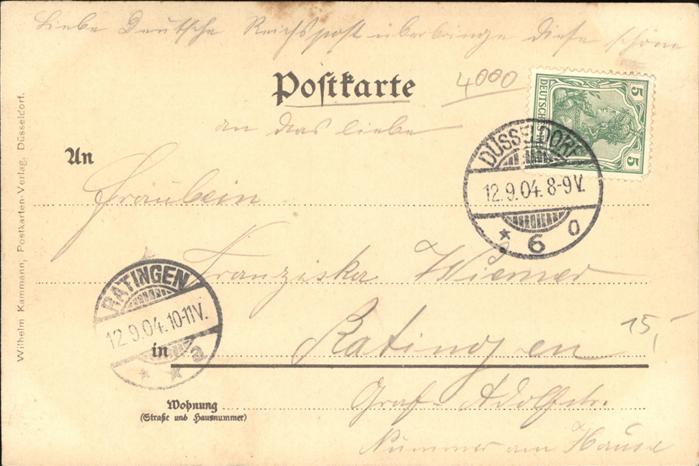 Liebe Deutsche Reichspost überbringe diese schöne
Postkarte
4000
an das liebe
An
Fräulein
Franziska Wiemer
in
Ratingen
15,-
Wohnung
(Straße und Hausnummer)
Graf-Adolfstr.
Nummer am Hause
5
5
DÜSSELDORF
12.9.04. 8-9V.
* 6 o
RATINGEN
12.9.04. 10-11V.
Wilhelm Kammann, Postkarten-Verlag, Düsseldorf.